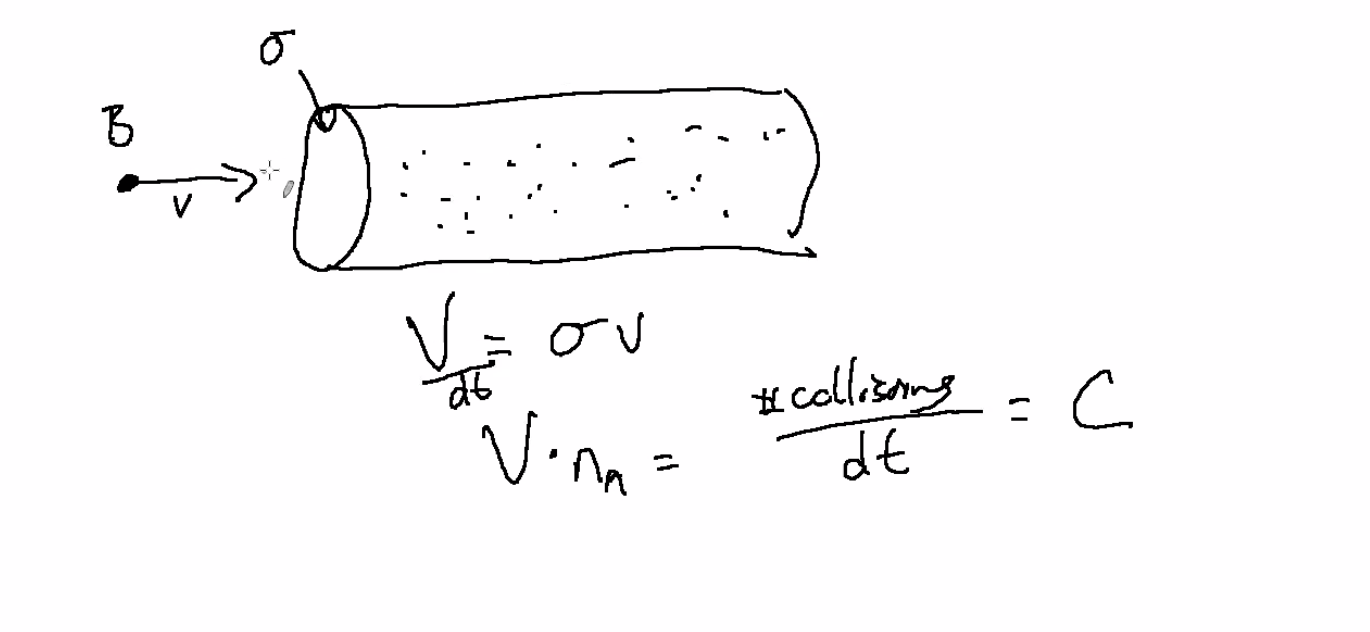 σ
B
v
V/dt = σv
V · nₙ = #collisions/dt = C